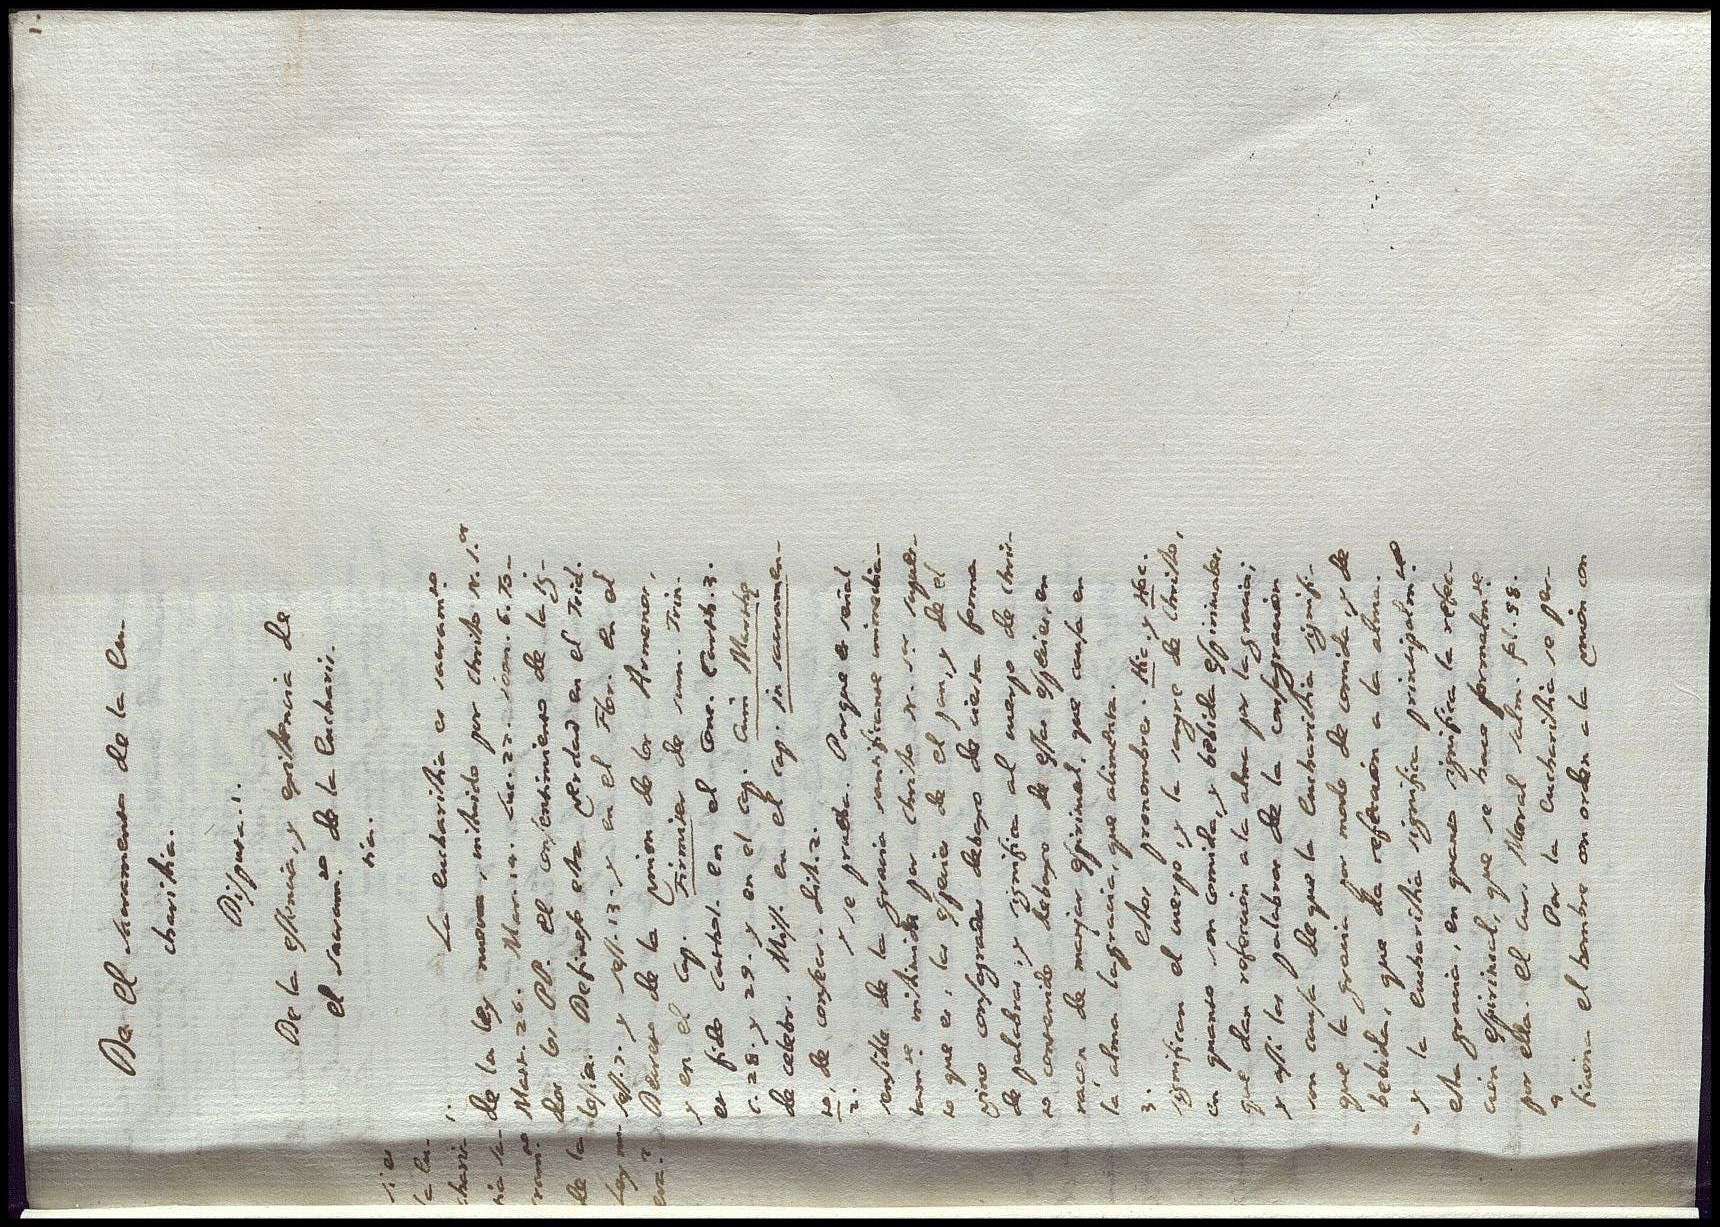 De el sacramento de la Eu-
charistia.
Disputa. 1.
De la essencia, y existencia de
el sacram.to de la Eucharis-
tia.
Si es
la Eu-
charis-
tia sa-
cram.to
de la
ley nu-
eva?
1. La eucharistia es sacram.to
de la ley nueva, instituido por christo N. S.or
Matt. 26. Marc. 14. Luc. 22. Ioan. 6. To-
dos los PP. el consentimiento de la ig-
lesia. Definese esta verdad en el Trid.
sess. 7. y sess. 13. y en el Flor. en el
Decreto de la Union de los Armenos,
y en el cap. Firmiter de sum. Trin.
et fide Cathol. en el Conc. Carth. 3.
c. 28. y 29. y en el cap. Cum Marthę
de celebr. Miss. en el cap. in sacramen-
to, de consecr. dist. 2.
2. y se prueba. Porque es señal
sensible de la gracia santificante inmediata-
tam.te instituida por christo N. S.or supues-
to que es, las especies de el pan, y de el
vino consagradas debaxo de cierta forma
de palabras, y significa al cuerpo de chris-
to contenido debaxo de essas especies, en
raçon de manjar espiritual, que causa en
la alma la gracia, que alimenta.
3. estos pronombres. Hic. y Hęc.
significan el cuerpo, y la sangre de christo,
en quanto son comida, y bebida espirituales,
que dan refeccion a la alma por la gracia;
y assi las palabras de la consagracion
son causa de que la Eucharistia signifi-
que la gracia por modo de comida, y de
bebida, que da refeccion a la alma.
y la Eucharistia significa principalm.te
esta gracia, en quanto significa la refec-
cion espiritual, que se hace formalm.te
por ella. el Cur. Moral salm. fol. 98.
4 Por la Eucharistia se per-
ficiona el hombre con orden a la union con